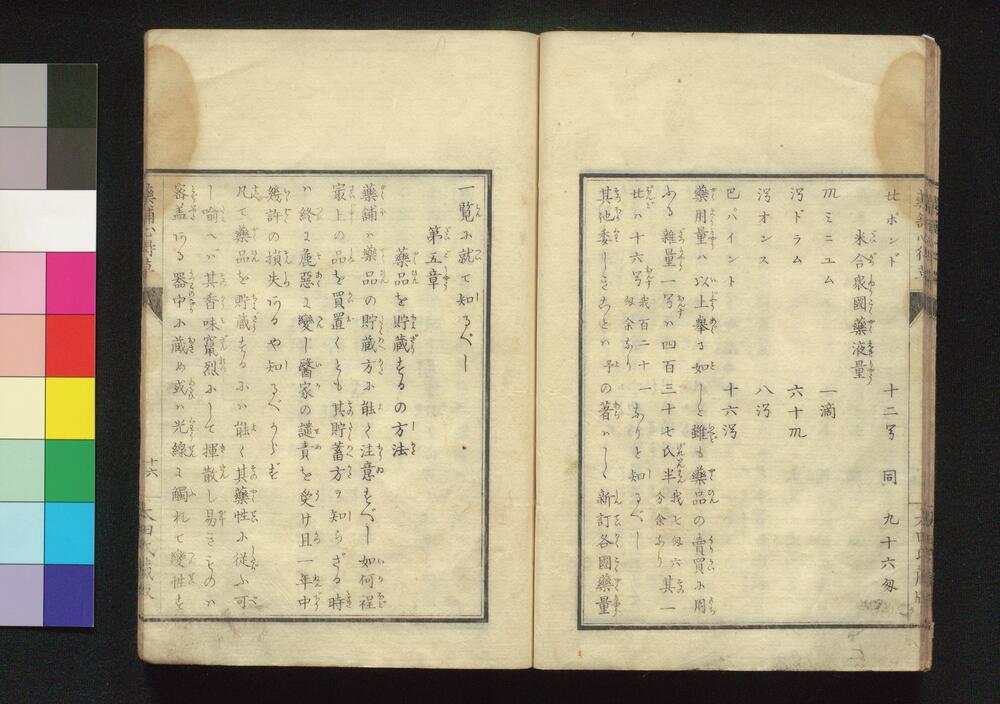 ℔ポンド 十二℥ 同 九十六匁
米合衆國藥液量
♏ミニユム 一滴
ʒドラム 六十♏
℥オンス 八ʒ
巴パイント 十六℥
藥用量ハ以上舉る如しと雖も藥品の賣買に用
ふる雜量一℥ハ四百三十七氏半我七匁六分余あり其一
℔ハ十六℥我百二十一匁余なりなりと知るべし
其他委しきことハ予の著ハしゝ新訂各國藥量
一覧に就て知るべし
第五章
藥品を貯蔵するの方法
藥舗ハ藥品の貯蔵方に能く注意すべし如何程
最上の品を買置くとも其貯蓄方ヲ知らざる時
ハ終に麁惡に變し醫家の譴責を受け且一年中
幾許の損失あるや知るべからず
凡て藥品を貯蔵するにハ能く其藥性に従ふ可
し喻へバ其香味竄烈にして揮散し易きものハ
密盖ある器中に蔵め或ハ光線に觸れて變性す
十六